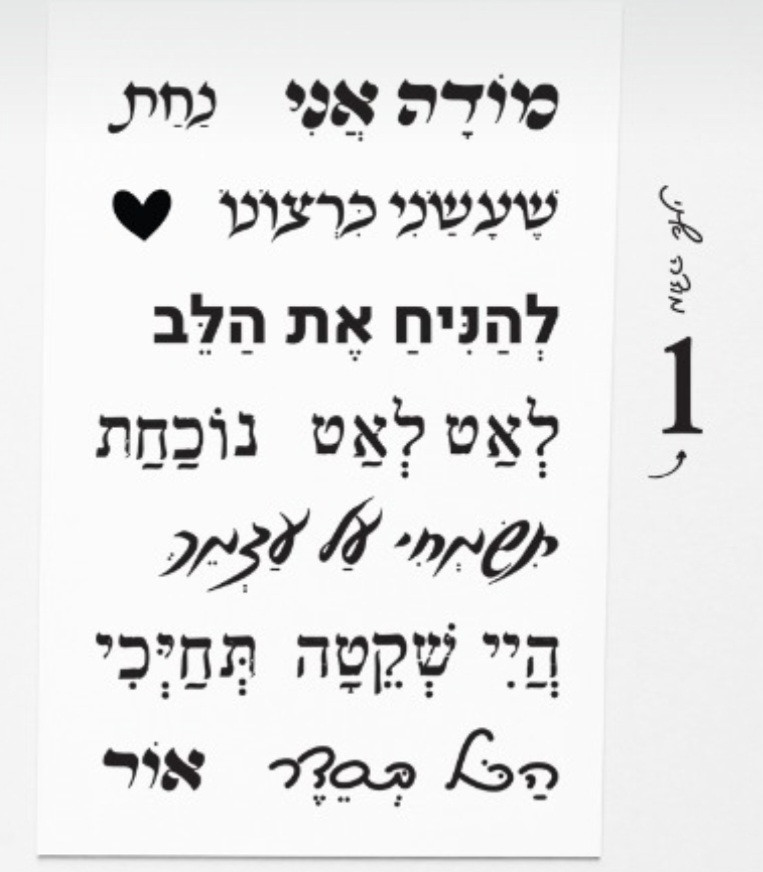 מוֹדָה אֲנִי נַחַת
שֶׁעָשַׂנִי כִּרְצוֹנוֹ
לְהַנִּיחַ אֶת הַלֵּב
לְאַט לְאַט נוֹכַחַת
תִּשְׂמְחִי עַל עַצְמֵךְ
הֲיִי שְׁקֵטָה תְּחַיְּכִי
הַכֹּל בְּסֵדֶר אוֹר
מודה אני
1